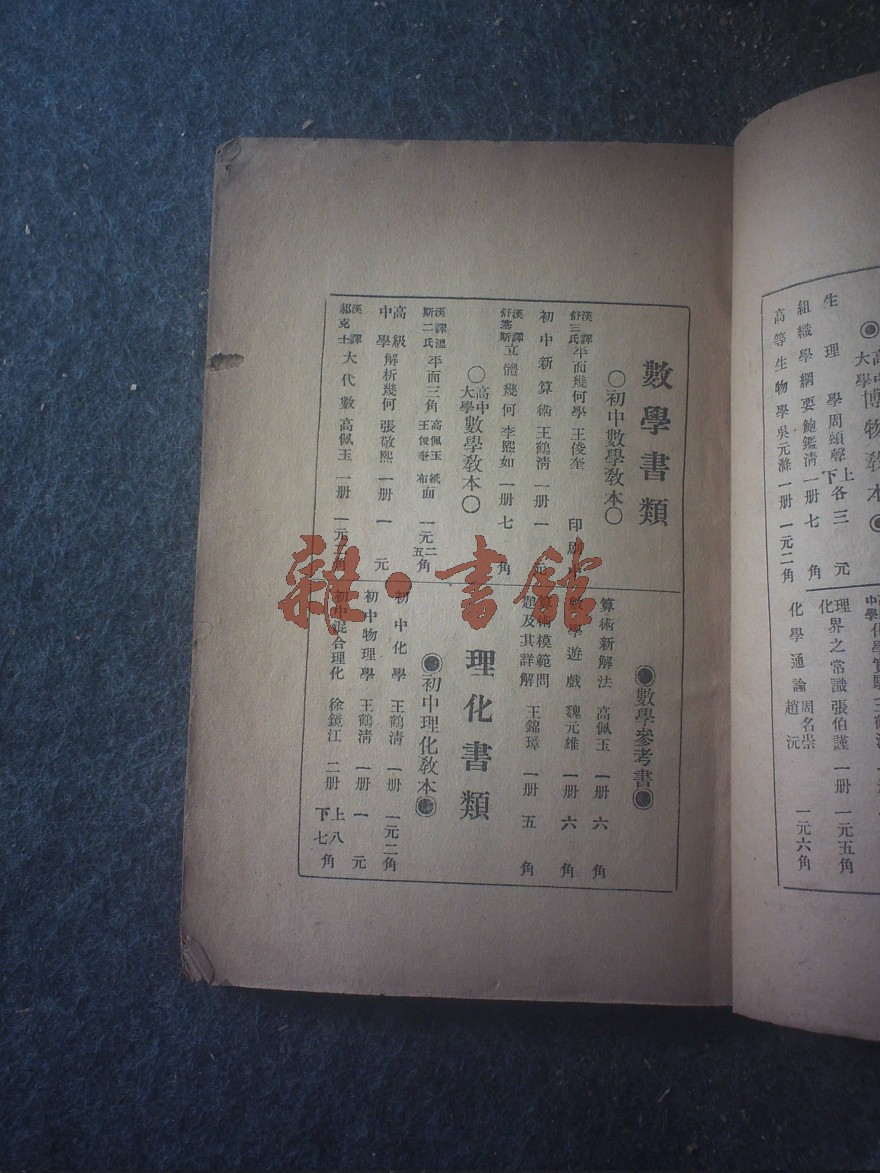 數學書類
○初中數學教本○
漢譯舒三氏平面幾何學 王俊奎 印刷中
初中新算術 王鶴淸 一册 一元
漢譯舒塞斯立體幾何 李熙如 一册 七角
○高中大學數學教本○
漢譯溫斯二氏平面三角 高佩玉 王俊奎 紙面 布面 一元二五
高級中學解析幾何 張敬熙 一册 一元
漢譯郝克士大代數 高佩玉 一册 一元二角
數學參考書
算術新解法 高佩玉 一册 六角
數學遊戲 魏元雄 一册 六角
算術模範問題及其詳解 王錦璋 一册 五角
理化書類
初中理化教本
初中化學 王鶴淸 一册 一元二角
初中物理學 王鶴淸 一册 一元
初中混合理化 徐鏡江 二册 上八下七角
高中大學博物教本
生理學 周頌聲 上下各三元
組織學綱要 鮑鑑淸 一册 七角
高等生物學 吳元滌 一册 一元二角
理化界之常識 張伯謹 一册 一元五角
化學通論 周名崇 趙沅 一元六角
雜·書館